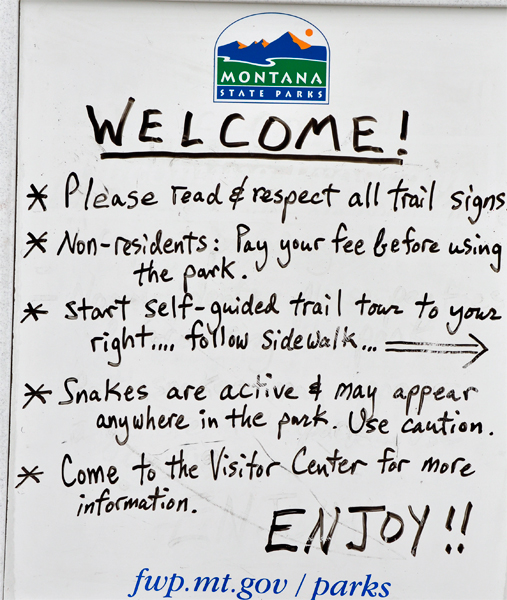 MONTANA
STATE PARKS
WELCOME!
* Please read & respect all trail signs
* Non-residents: Pay your fee before using
the park.
* Start self-guided trail tour to your
right.... follow sidewalk... ⟹
* Snakes are active & may appear
anywhere in the park. Use caution.
* Come to the Visitor Center for more
information.
ENJOY!!
fwp.mt.gov / parks